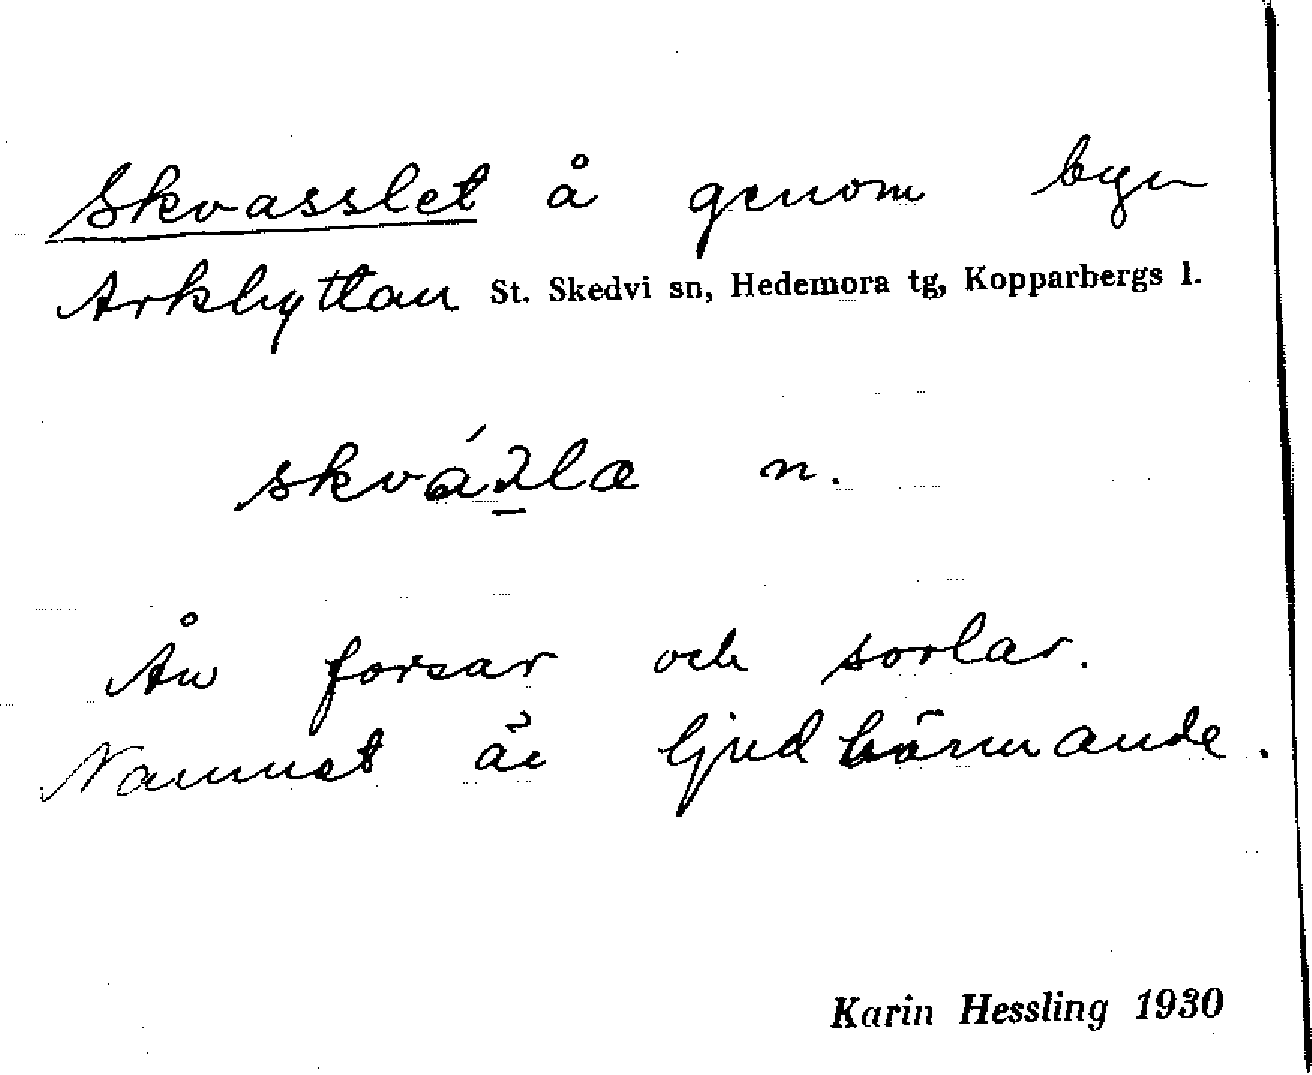 Skvasslet å genom byn
Arkhyttan St. Skedvi sn, Hedemora tg, Kopparbergs l.
n.
Ån forsar och sorlar.
Namnet är ljudhärmande.
Karin Hessling 1930